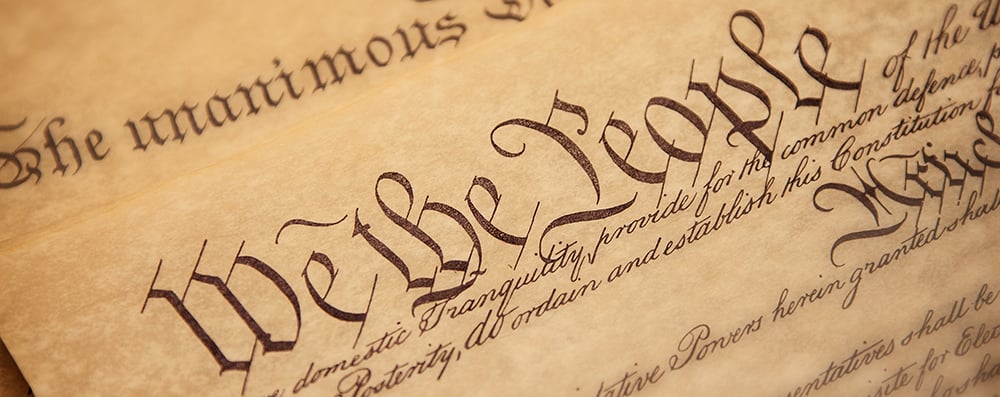 The unanimous
We the People of the
domestic Tranquility, provide for the common defence,
Posterity, do ordain and establish this Constitution
Powers herein granted shall
shall be
for